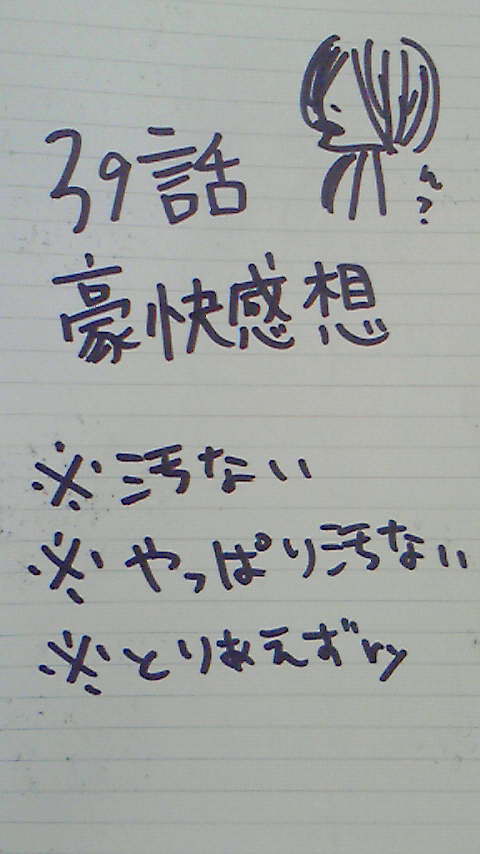 39話
豪快感想
※汚ない
※やっぱり汚ない
※とりあえずry